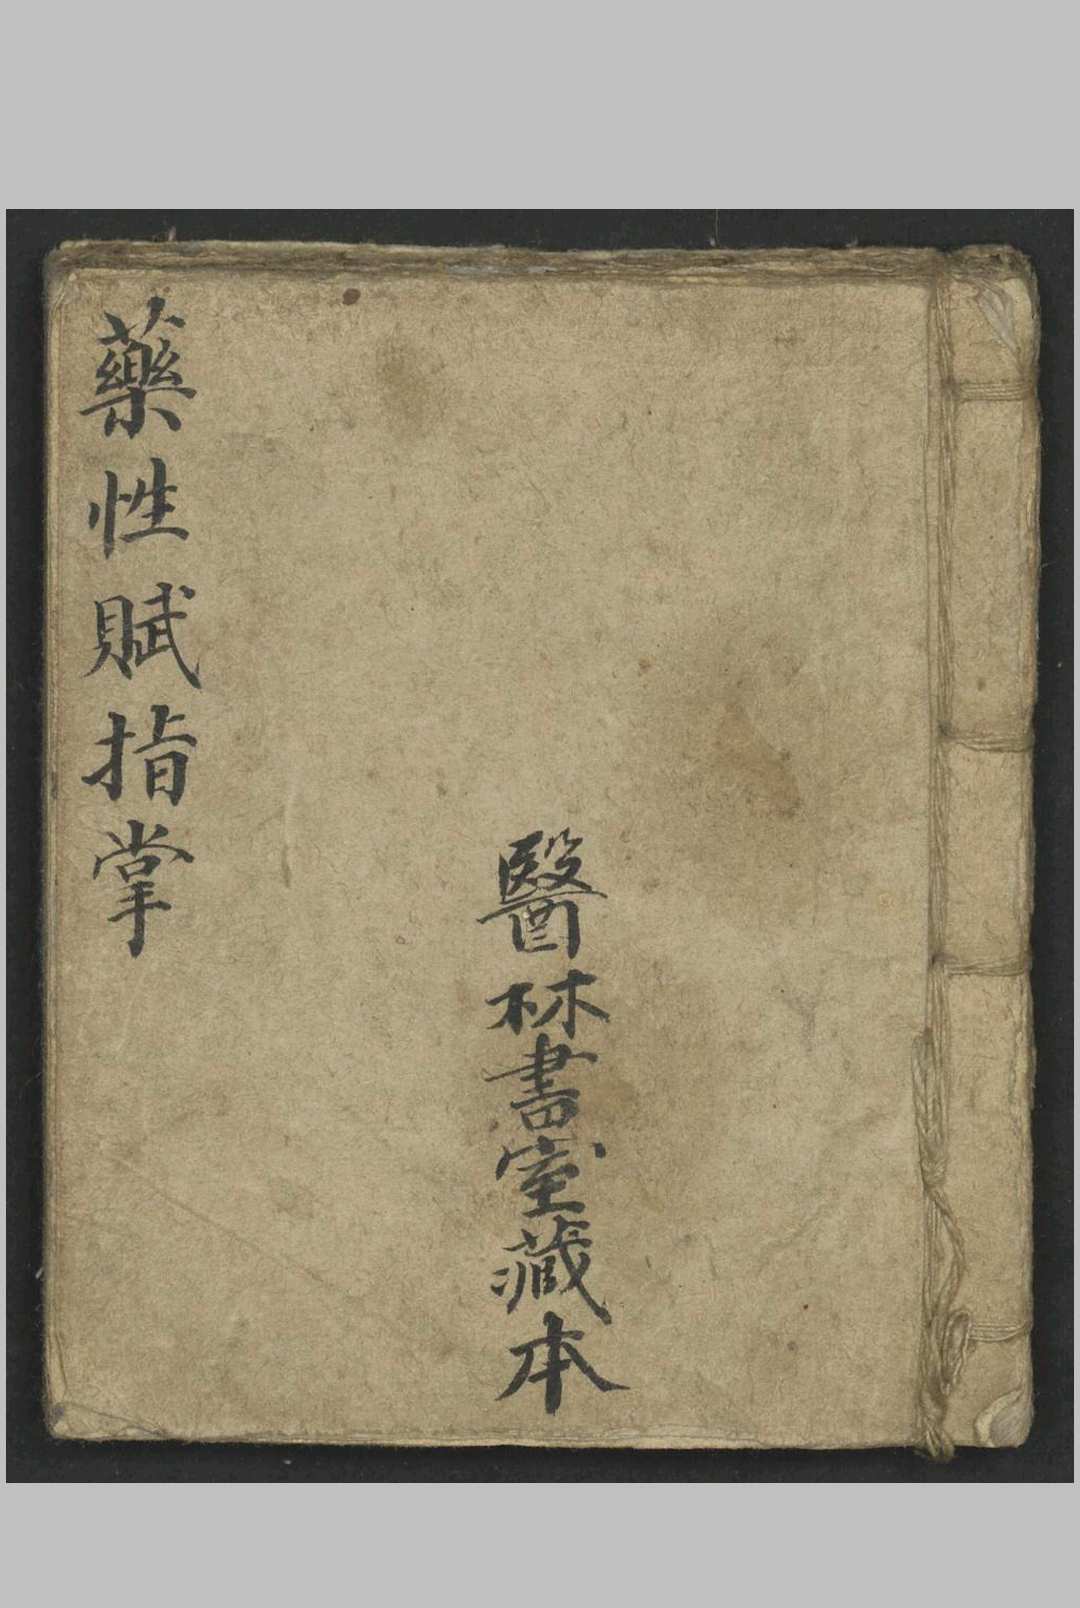 醫林書室藏本
藥性賦指掌